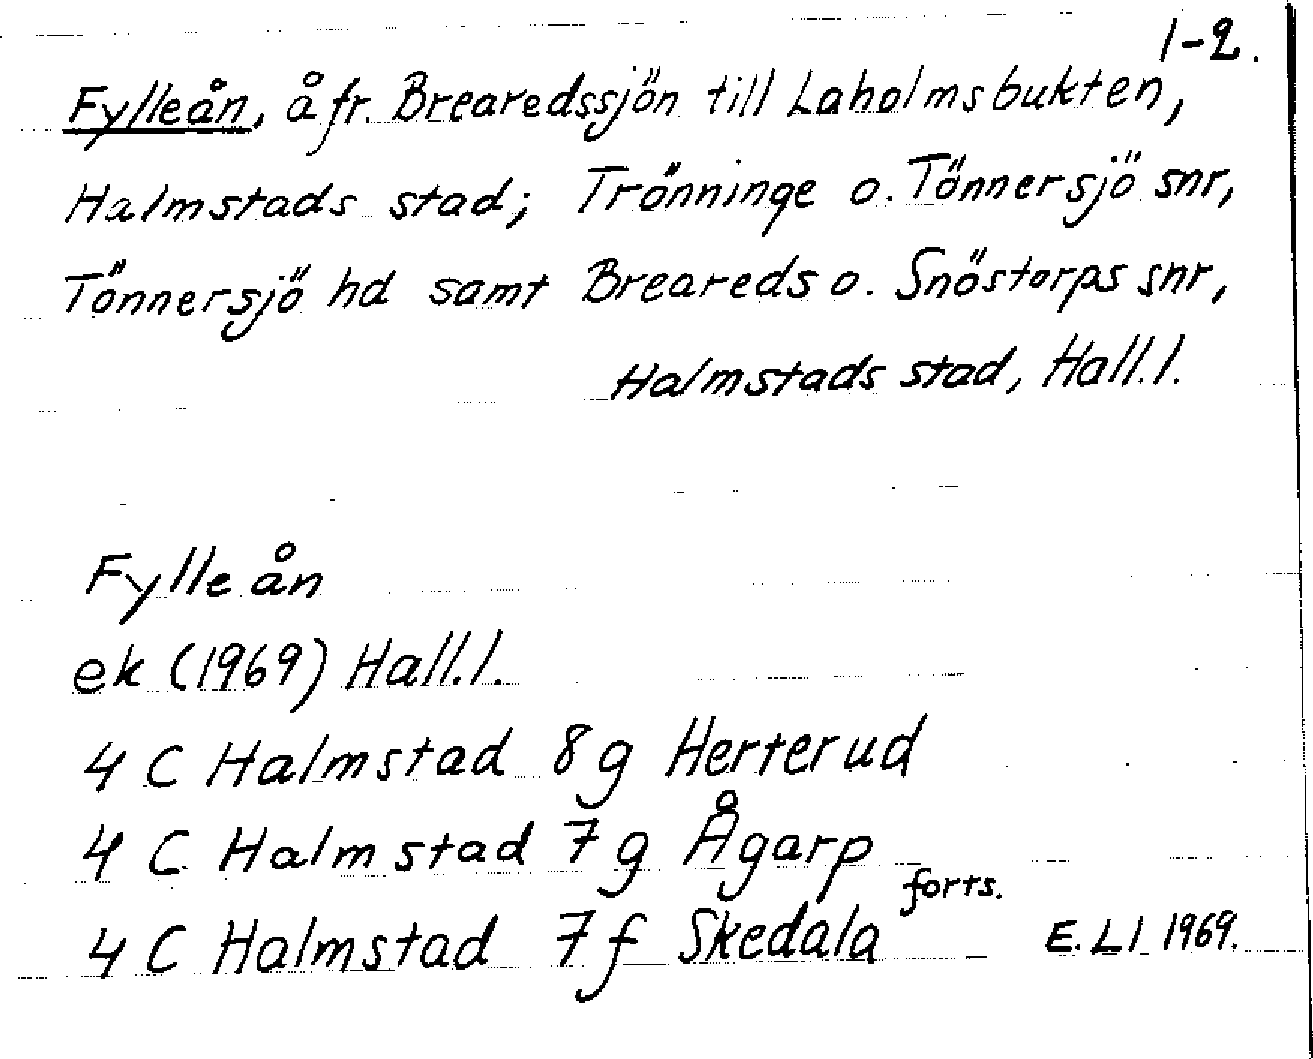 1-2.
Fylleån, å fr. Brearedssjön till Laholmsbukten,
Halmstads stad; Trönninge o. Tönnersjö snr,
Tönnersjö hd samt Breareds o. Snöstorps snr,
Halmstads stad, Hall.l.
Fylleån
ek (1969) Hall.l.
4 C Halmstad 8g Herterud
4 C Halmstad 7g Ågarp
forts.
4 C Halmstad 7f Skedala E.Ll 1969.